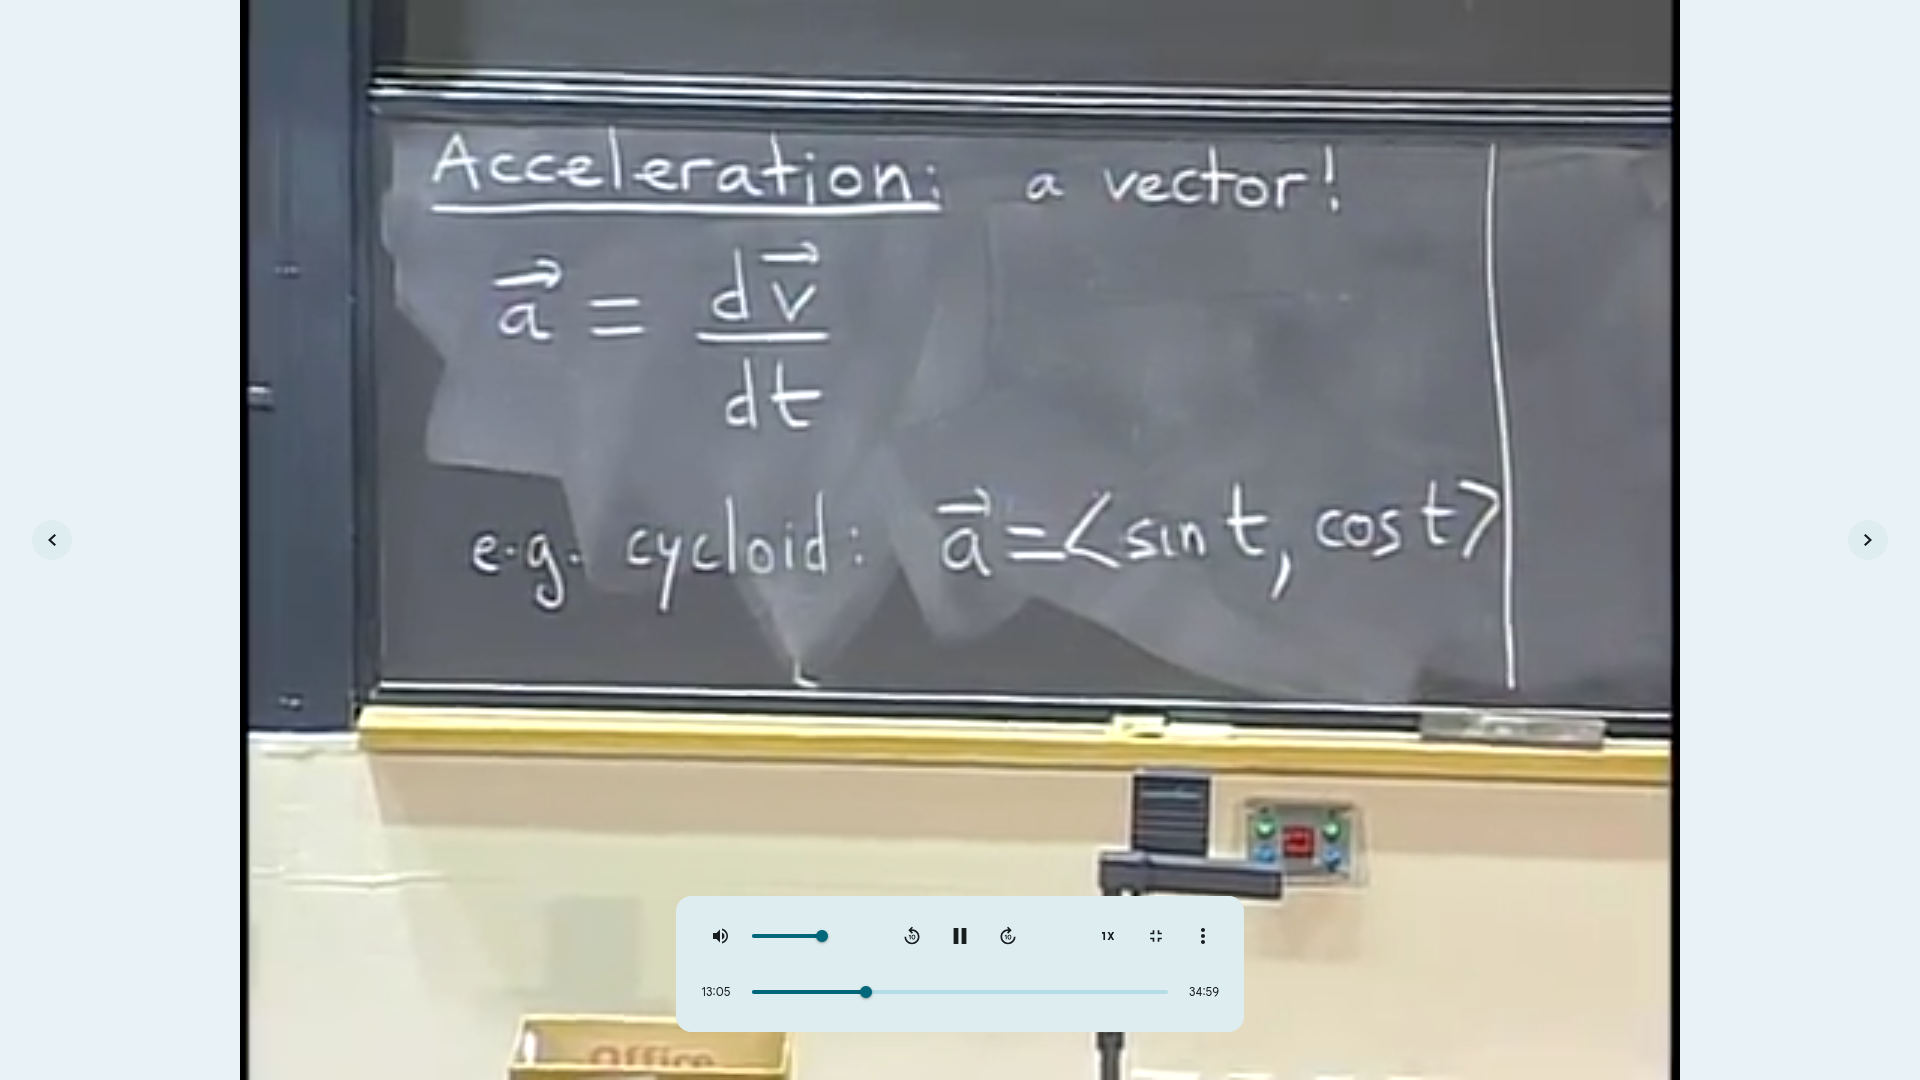 Acceleration: a vector!
a⃗ = dv⃗/dt
e.g. cycloid: a⃗ = <sin t, cos t>
10
10
1X
13:05
34:59
Office